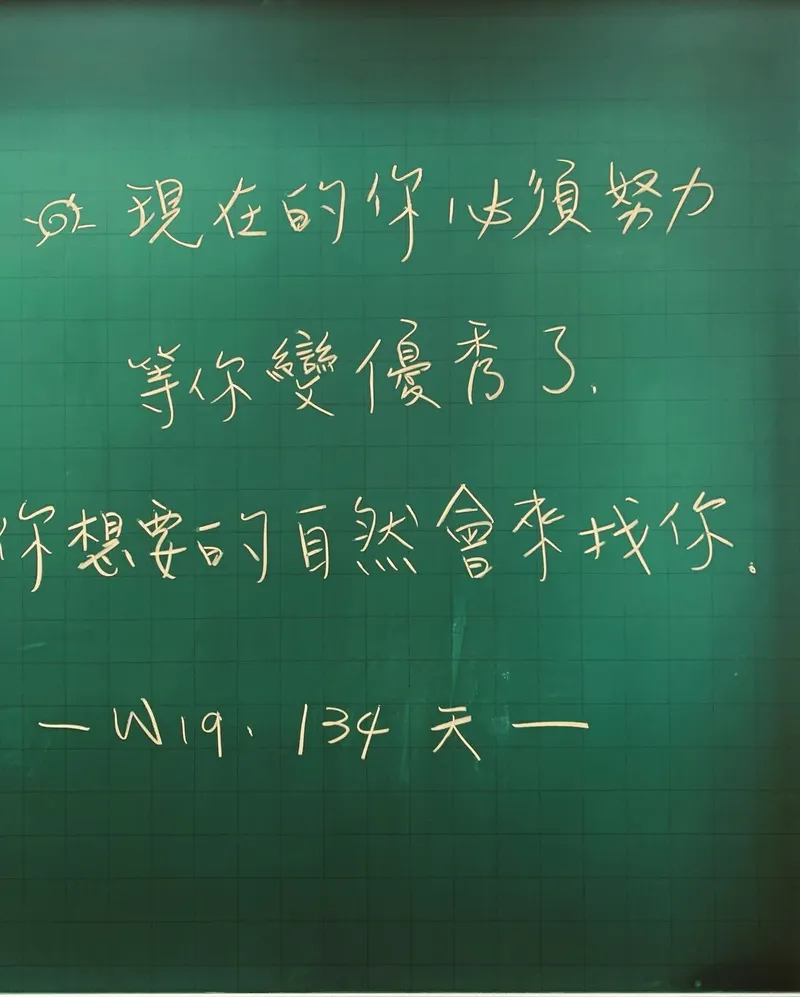 現在的你必須努力
等你變優秀了、
你想要的自然會來找你。
— W19、134天 —